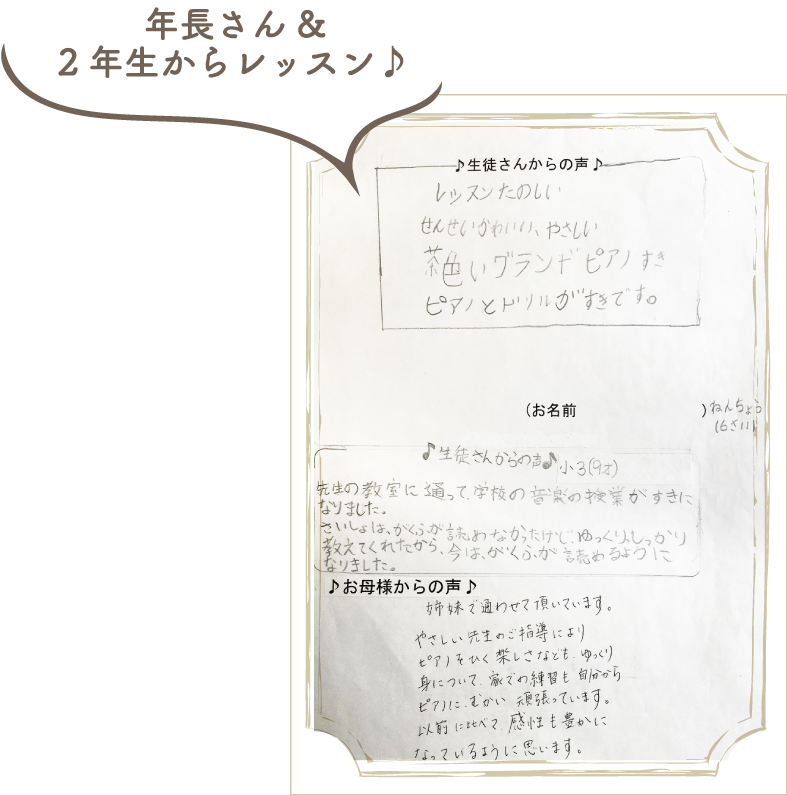 年長さん&
2年生からレッスン♪
♪生徒さんからの声♪
レッスンたのしい
せんせいかわいい、やさしい
茶色いグランドピアノすき
ピアノとドリルがすきです。
(お名前 )ねんちょう
(6さい)
♪生徒さんからの声♪小3(9才)
先生の教室に通って、学校の音楽の授業がすきに
なりました。
さいしょは、がくふが読めなかったけど、ゆっくり、しっかり
教えてくれたから、今は、がくふが読めるように
なりました。
♪お母様からの声♪
姉妹で通わせて頂いています。
やさしい先生のご指導により
ピアノをひく楽しさなども、ゆっくり
身について、家での練習も自分から
ピアノに、むかい頑張っています。
以前に比べて、感性も豊かに
なっているように思います。